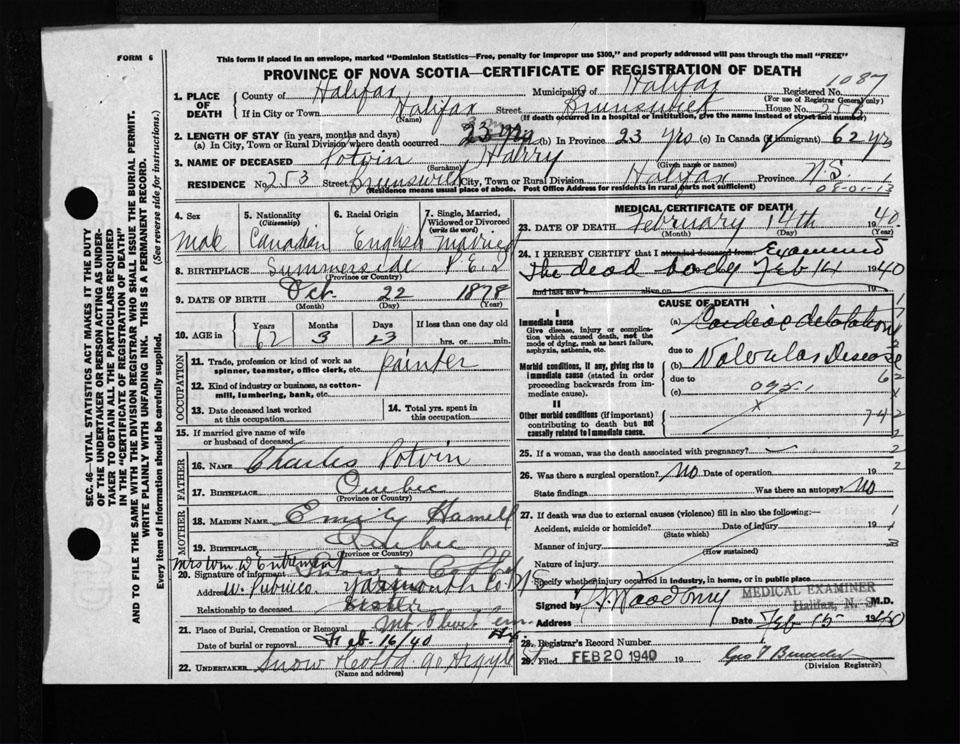 FORM 6
This form if placed in an envelope, marked "Dominion Statistics—Free, penalty for improper use $300," and properly addressed will pass through the mail "FREE"
PROVINCE OF NOVA SCOTIA—CERTIFICATE OF REGISTRATION OF DEATH
SEC. 46—VITAL STATISTICS ACT MAKES IT THE DUTY
OF THE UNDERTAKER OR PERSON ACTING AS UNDER-
TAKER TO OBTAIN ALL THE PARTICULARS REQUIRED
IN THE "CERTIFICATE OF REGISTRATION OF DEATH"
AND TO FILE THE SAME WITH THE DIVISION REGISTRAR WHO SHALL ISSUE THE BURIAL PERMIT.
WRITE PLAINLY WITH UNFADING INK. THIS IS A PERMANENT RECORD.
Every item of information should be carefully supplied. (See reverse side for instructions.)
1087
1. PLACE OF DEATH County of Halifax Municipality of Halifax Registered No.
(For use of Registrar General only)
If in City or Town Halifax Street Brunswick House No. 253
(Name) (If death occurred in a hospital or institution, give the name instead of street and number)
2. LENGTH OF STAY (in years, months and days)
(a) In City, Town or Rural Division where death occurred 23 yrs (b) In Province 23 yrs (c) In Canada (if immigrant) 62 yrs
3. NAME OF DECEASED Potvin Harry
(Surname) (Given name or names)
RESIDENCE No. 253 Street Brunswick City, Town or Rural Division Halifax Province N.S.
(Residence means usual place of abode. Post Office Address for residents in rural parts not sufficient)
4. Sex 5. Nationality (Citizenship) 6. Racial Origin 7. Single, Married, Widowed or Divorced (write the word)
Male Canadian English Married
8. BIRTHPLACE Summerside P E I
(Province or Country)
9. DATE OF BIRTH Oct. 22 1878
(Month) (Day) (Year)
10. AGE in Years Months Days If less than one day old
62 3 23 hrs. or min.
OCCUPATION
11. Trade, profession or kind of work as spinner, teamster, office clerk, etc. painter
12. Kind of industry or business, as cotton-mill, lumbering, bank, etc.
13. Date deceased last worked at this occupation
14. Total yrs. spent in this occupation
15. If married give name of wife or husband of deceased
FATHER
16. NAME Charles Potvin
17. BIRTHPLACE Quebec
(Province or Country)
MOTHER
18. MAIDEN NAME Emily Hamell
19. BIRTHPLACE Quebec
(Province or Country)
Mrs Wm. D'Entremont
20. Signature of informant
Address W. Pubnico. Yarmouth Co. N/S
Relationship to deceased Sister
21. Place of Burial, Cremation or Removal Mt. Olivet Cem.
Date of burial or removal Feb. 16/40
22. UNDERTAKER Snow & Co Ltd. 90 Argyle
(Name and address)
MEDICAL CERTIFICATE OF DEATH
23. DATE OF DEATH February 14th 1940
(Month) (Day) (Year)
24. I HEREBY CERTIFY that I attended deceased from Examined
The dead body Feb 14 1940
and last saw h alive on 19
CAUSE OF DEATH
I
Immediate cause
Give disease, injury or complication which caused death, not the mode of dying, such as heart failure, asphyxia, asthenia, etc.
(a) Cardiac dilatation
due to
Morbid conditions, if any, giving rise to immediate cause (stated in order proceeding backwards from immediate cause).
(b) Valvular Disease
due to
(c) 092.1
II
Other morbid conditions (if important) contributing to death but not causally related to immediate cause.
742
25. If a woman, was the death associated with pregnancy?
26. Was there a surgical operation? No Date of operation 19
State findings Was there an autopsy? No
27. If death was due to external causes (violence) fill in also the following:—
Accident, suicide or homicide? Date of injury 19
(State which)
Manner of injury
(How sustained)
Nature of injury
Specify whether injury occurred in industry, in home, or in public place
MEDICAL EXAMINER
Halifax, N. S.
Signed by M.D.
Address Date Feb 15 1940
28. Registrar's Record Number
29. Filed FEB 20 1940 19
(Division Registrar)